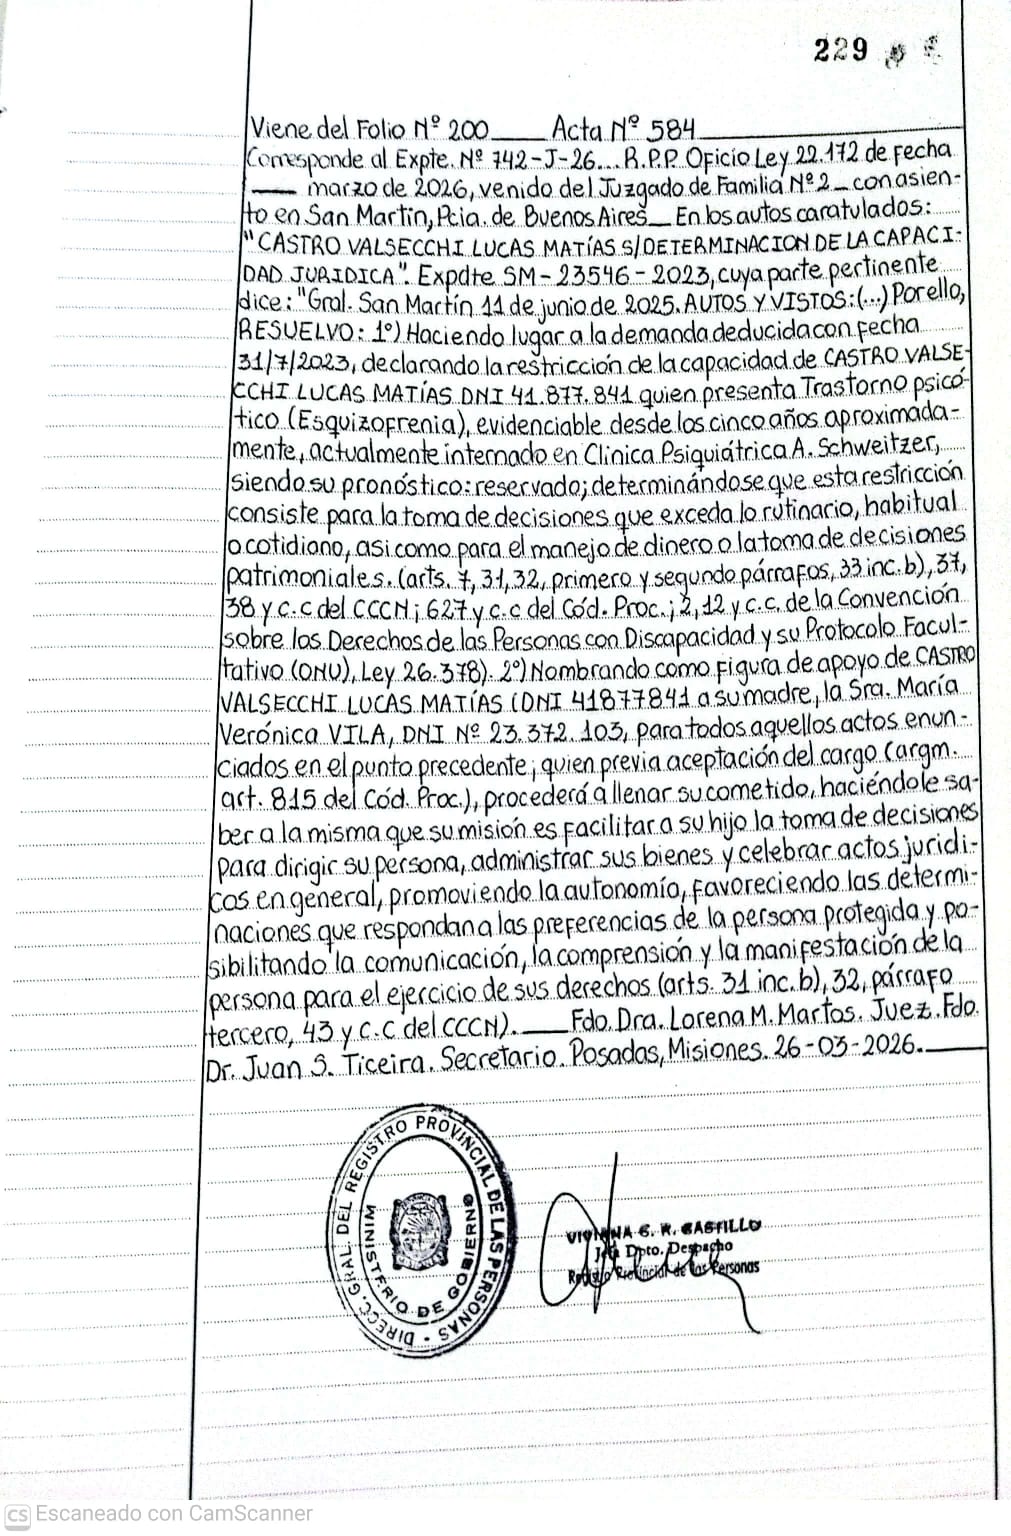 229
Viene del Folio Nº 200____Acta Nº 584____
Corresponde al Expte. Nº 742-J-26... R.P.P. Oficio Ley 22.172 de fecha
____ marzo de 2026, venido del Juzgado de Familia Nº 2_ con asien-
to en San Martin, Pcia. de Buenos Aires__ En los autos caratulados:
"CASTRO VALSECCHI LUCAS MATÍAS S/DETERMINACION DE LA CAPACI-
DAD JURIDICA". Expdte SM-23546-2023, cuya parte pertinente
dice: "Gral. San Martín 11 de junio de 2025. AUTOS Y VISTOS: (...) Por ello,
RESUELVO: 1º) Haciendo lugar a la demanda deducida con fecha
31/7/2023, declarando la restricción de la capacidad de CASTRO VALSE-
CCHI LUCAS MATÍAS DNI 41.877.841 quien presenta Trastorno psicó-
tico (Esquizofrenia), evidenciable desde los cinco años aproximada-
mente, actualmente internado en Clínica Psiquiátrica A. Schweitzer,
siendo su pronóstico: reservado; determinándose que esta restricción
consiste para la toma de decisiones que exceda lo rutinario, habitual
o cotidiano, asi como para el manejo de dinero o la toma de decisiones
patrimoniales. (arts. 7, 31, 32, primero y segundo párrafos, 33 inc. b), 37,
38 y c.c del CCCN; 627 y c.c del Cód. Proc.; 2, 12 y c.c. de la Convención
sobre los Derechos de las Personas con Discapacidad y su Protocolo Facul-
tativo (ONU), Ley 26.378). 2º) Nombrando como figura de apoyo de CASTRO
VALSECCHI LUCAS MATÍAS (DNI 41877841 a su madre, la Sra. María
Verónica VILA, DNI Nº 23.372.103, para todos aquellos actos enun-
ciados en el punto precedente; quien previa aceptación del cargo (argm.
art. 815 del Cód. Proc.), procederá a llenar su cometido, haciéndole sa-
ber a la misma que su misión es facilitar a su hijo la toma de decisiones
para dirigir su persona, administrar sus bienes y celebrar actos juridi-
cos en general, promoviendo la autonomía, favoreciendo las determi-
naciones que respondan a las preferencias de la persona protegida y po-
sibilitando la comunicación, la comprensión y la manifestación de la
persona para el ejercicio de sus derechos (arts. 31 inc. b), 32, párrafo
tercero, 43 y c.c del CCCN).____ Fdo. Dra. Lorena M. Martos. Juez. Fdo.
Dr. Juan S. Ticeira. Secretario. Posadas, Misiones. 26-03-2026.____
DIRECC. GRAL. DEL REGISTRO PROVINCIAL DE LAS PERSONAS
MINISTERIO DE GOBIERNO
VIVIANA S. R. CASTILLO
Jefa Dpto. Despacho
Registro Provincial de las Personas
CS Escaneado con CamScanner